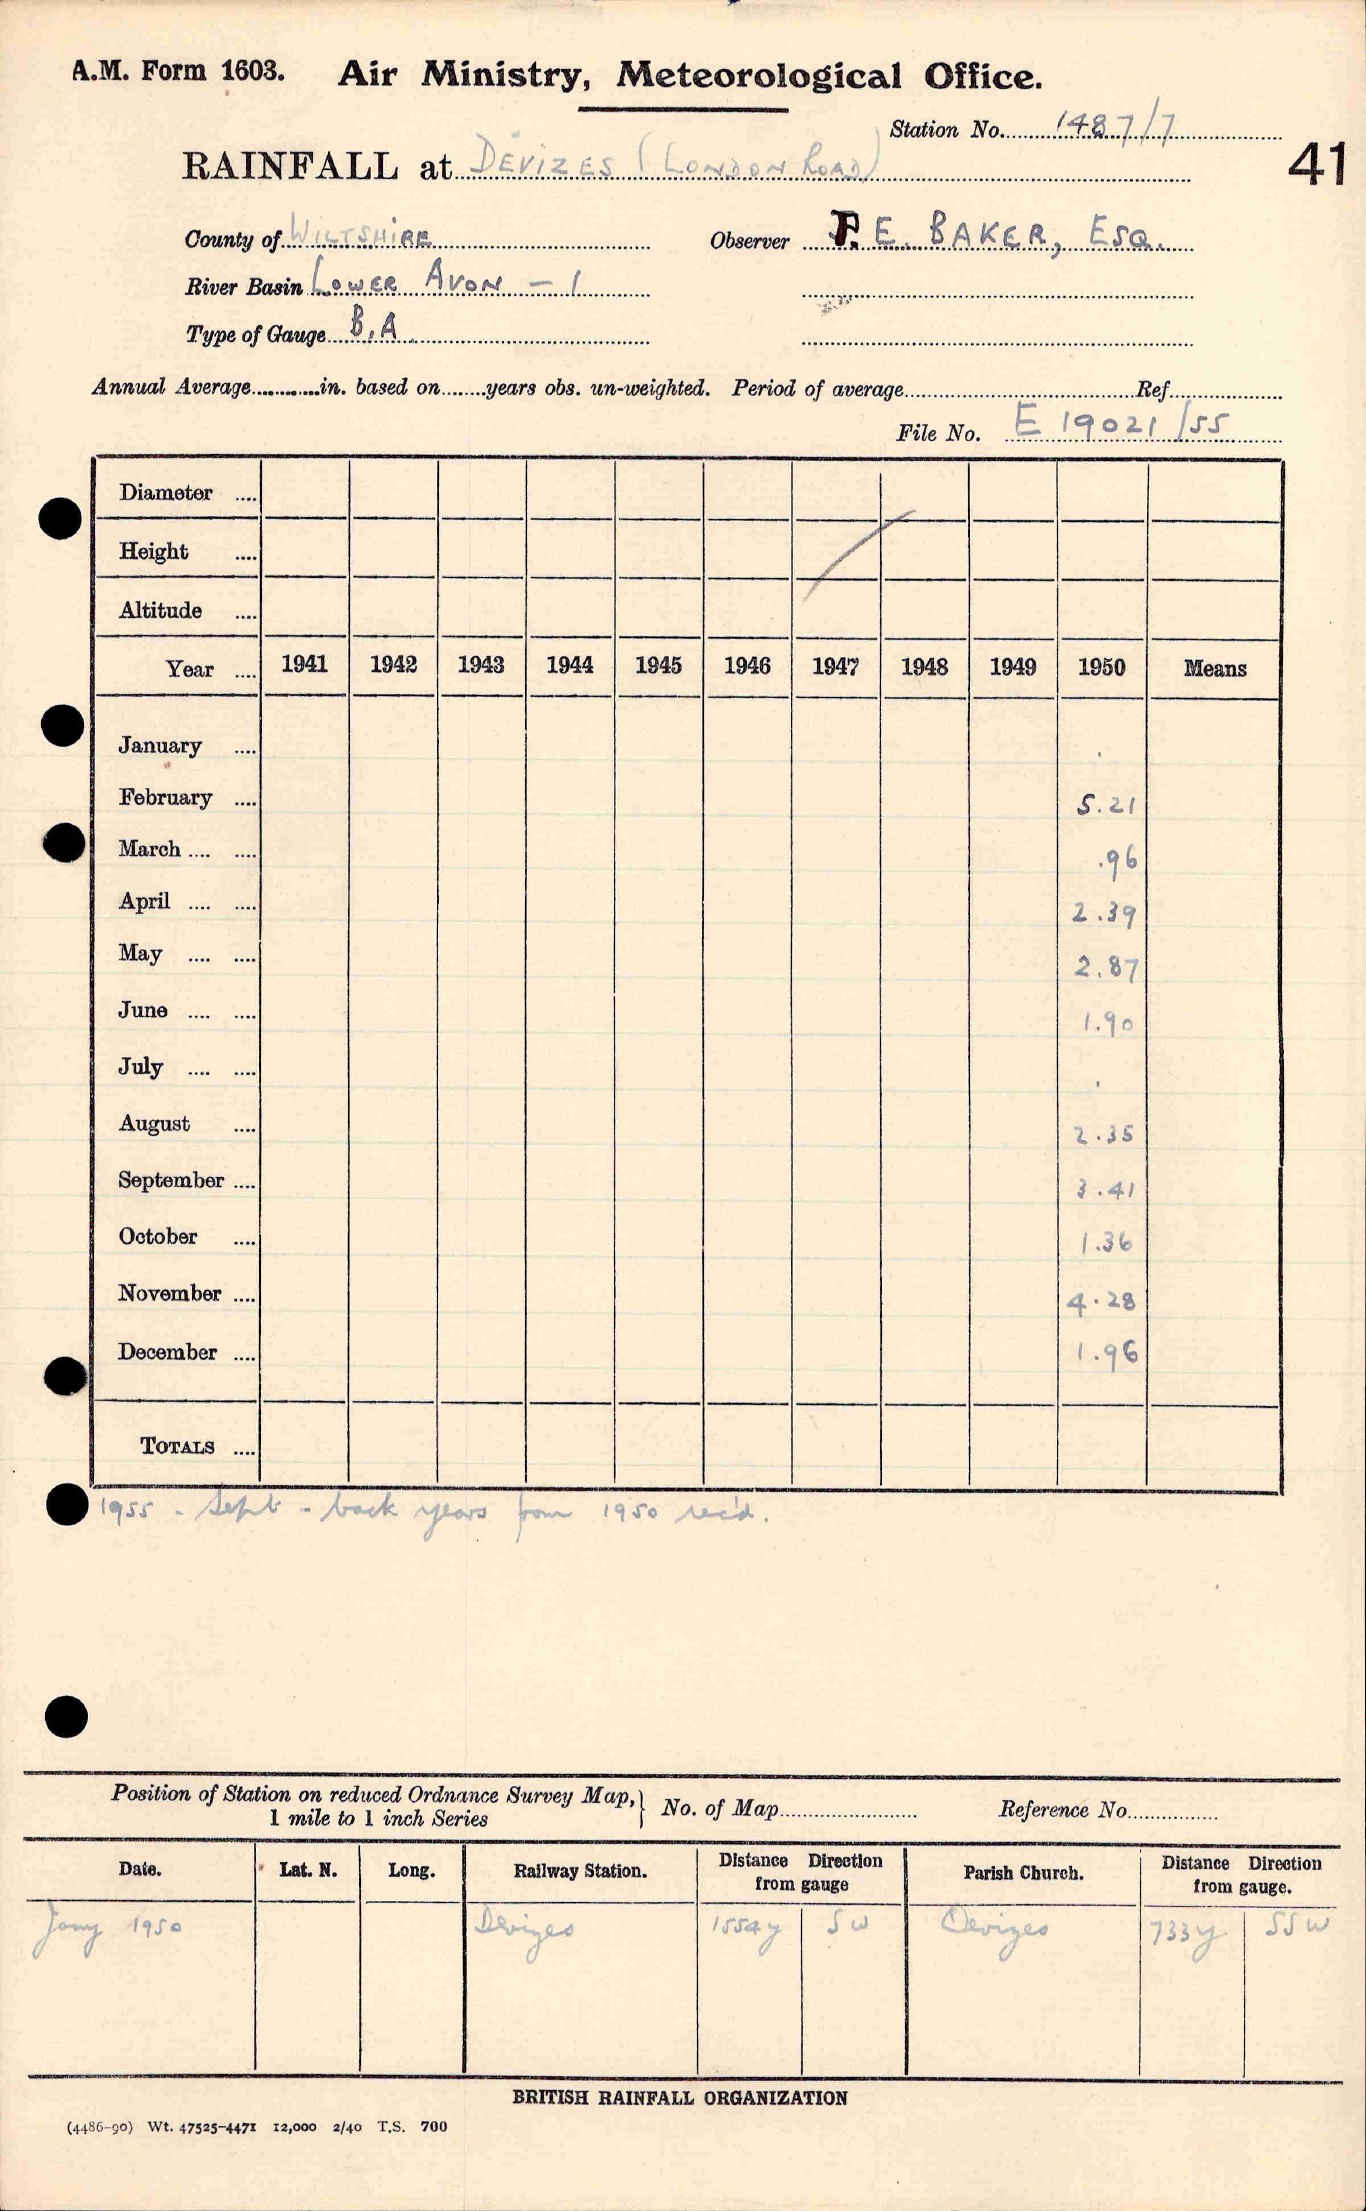 A.M. Form 1603. Air Ministry, Meteorological Office.
Station No. 1487/7
41
RAINFALL at DEVIZES (LONDON ROAD)
County of WILTSHIRE Observer P. E. BAKER, ESQ.
River Basin LOWER AVON – 1
Type of Gauge B.A.
Annual Average............in. based on........years obs. un-weighted. Period of average........................Ref........................
File No. E 19021/55
Diameter ....
Height ....
Altitude ....
Year .... 1941 1942 1943 1944 1945 1946 1947 1948 1949 1950 Means
January .... .
February .... 5.21
March .... .... .96
April .... .... 2.39
May .... .... 2.87
June .... .... 1.90
July .... .... .
August .... 2.35
September .... 3.41
October .... 1.36
November .... 4.28
December .... 1.96
TOTALS ....
1955 - Sept - back years from 1950 rec'd.
Position of Station on reduced Ordnance Survey Map,} No. of Map........................ Reference No................
1 mile to 1 inch Series
Date. Lat. N. Long. Railway Station. Distance Direction from gauge Parish Church. Distance Direction from gauge.
Jany 1950 Devizes 1554y SW Devizes 733y SSW
BRITISH RAINFALL ORGANIZATION
(4486-90) Wt. 47525-4471 12,000 2/40 T.S. 700